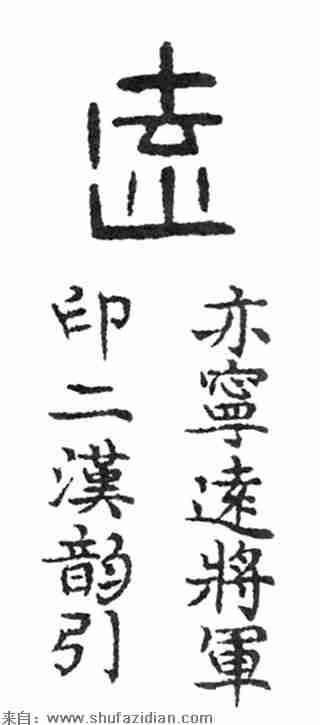 亦寧遠將軍
印二漢韵引
来自：www.shufazidian.com